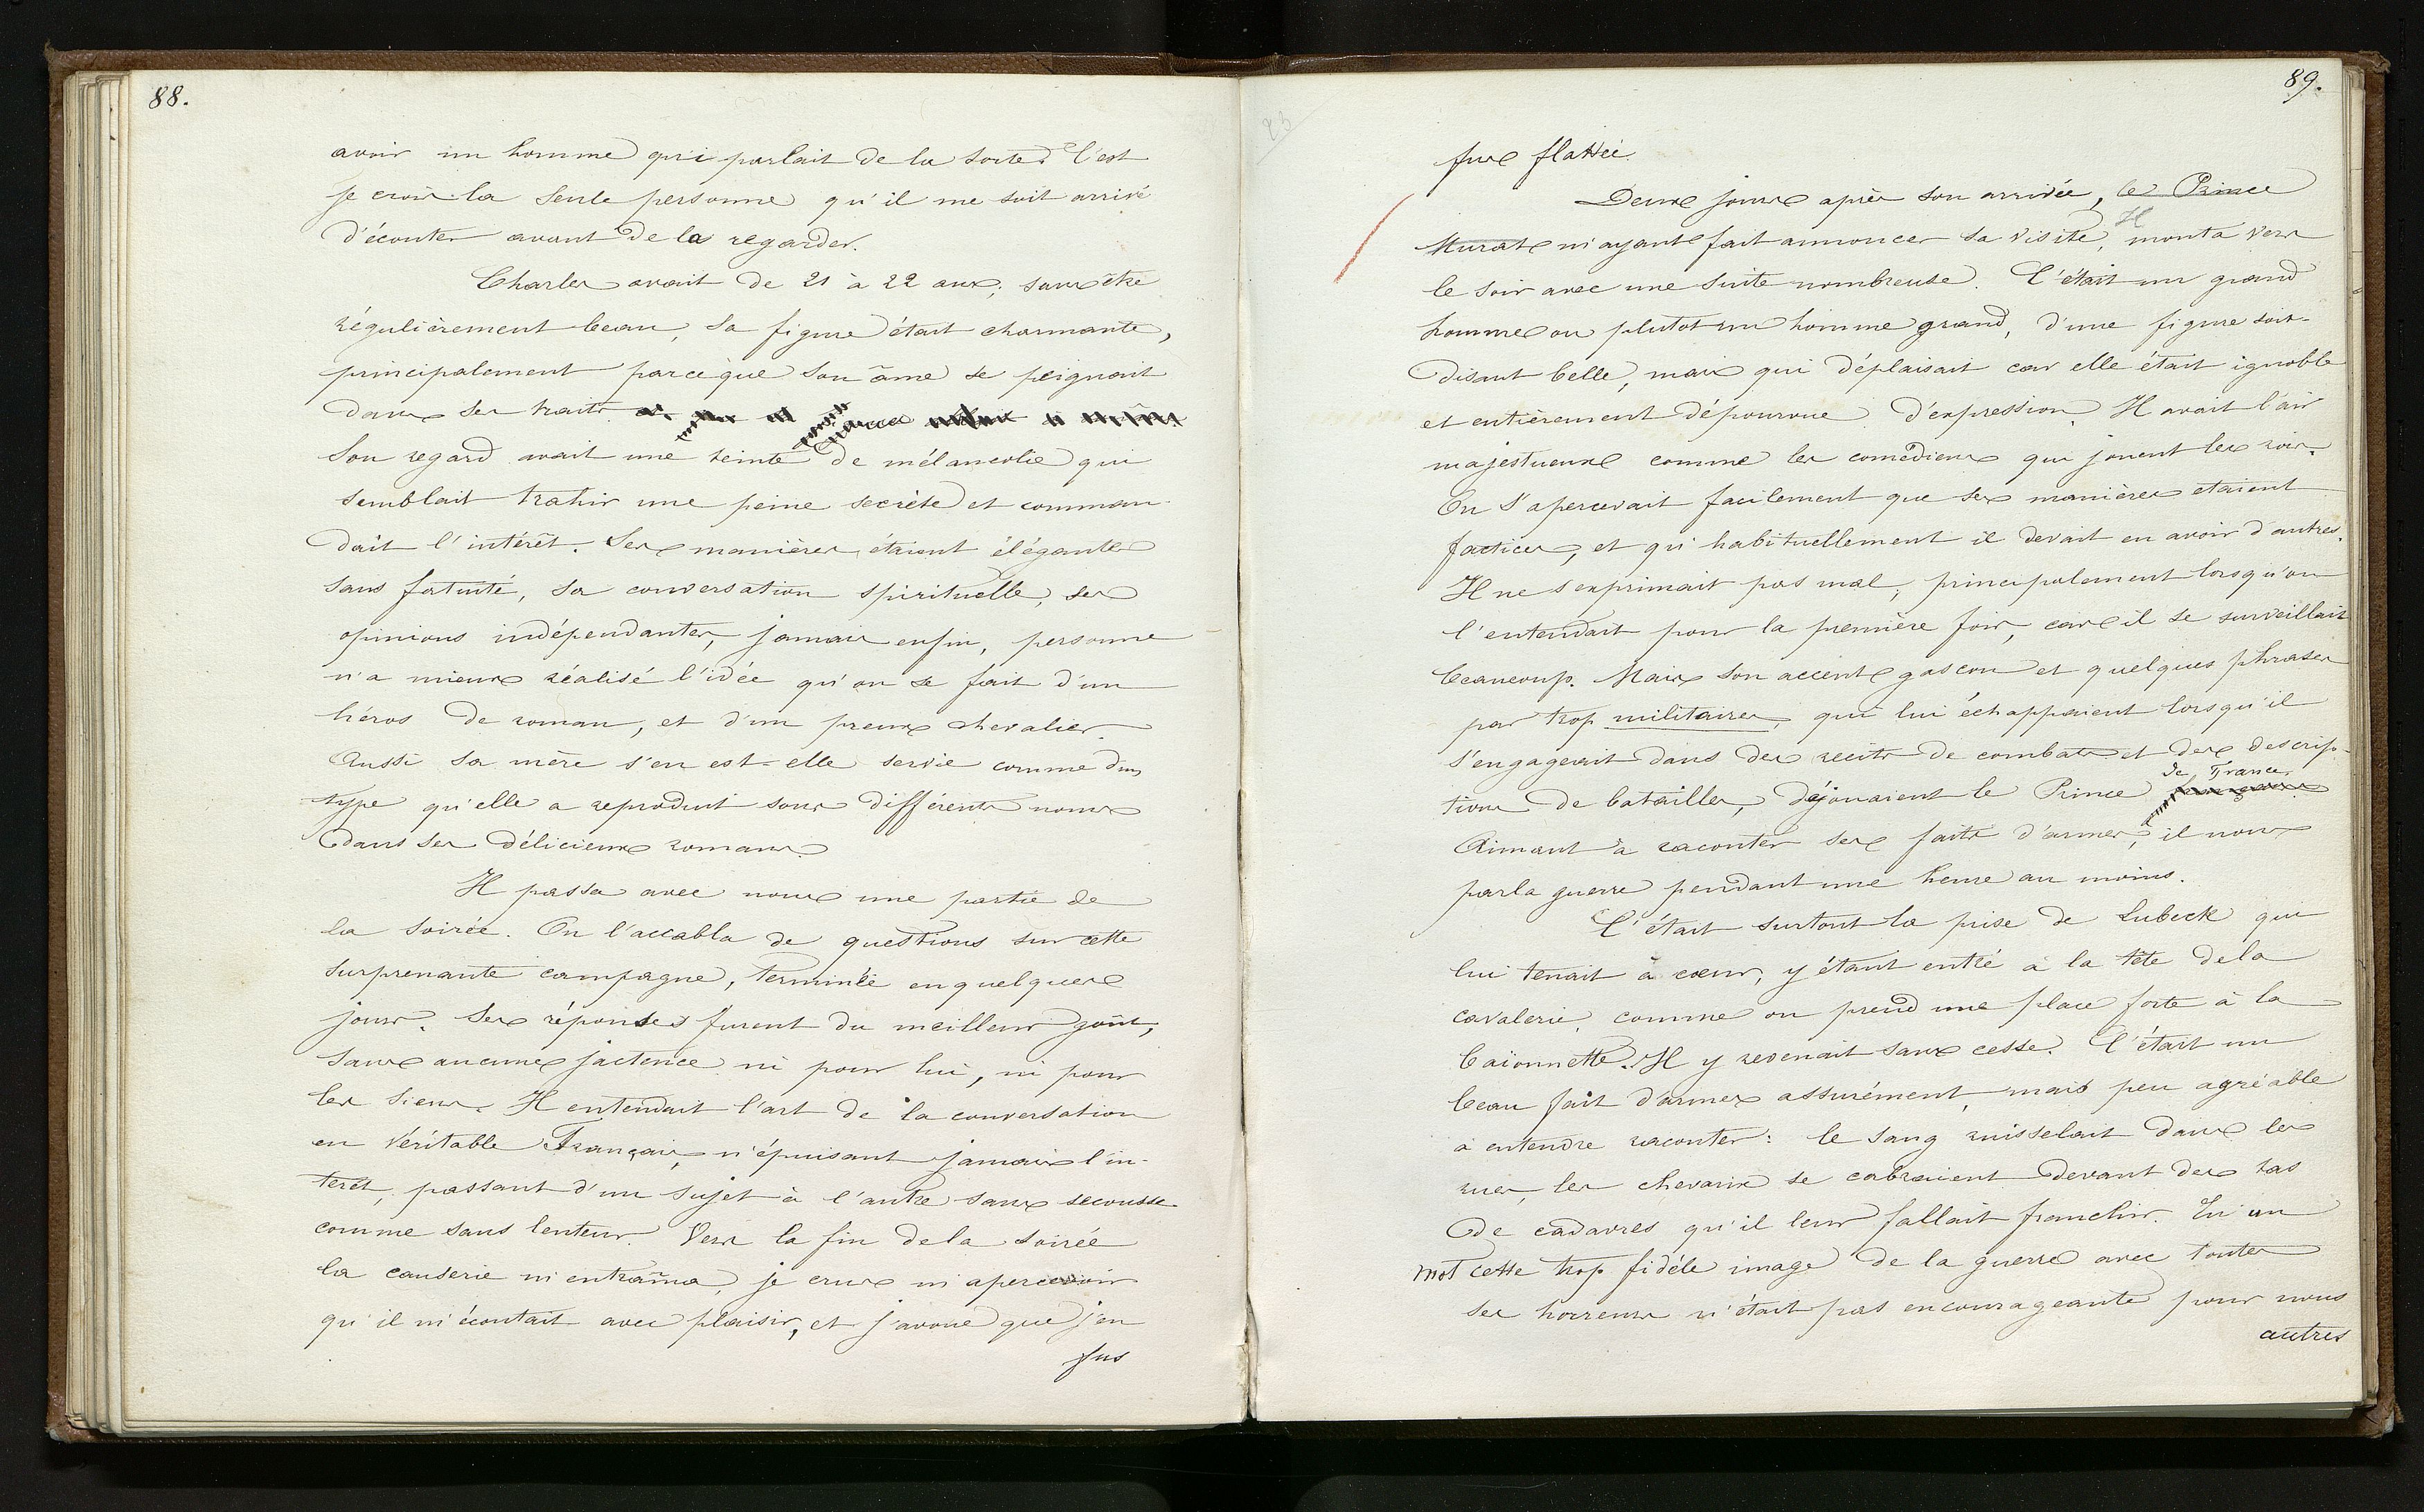 88.
avoir un homme qui parlait de la sorte. C'est
je crois la seule personne qu'il me soit arrivé
d'écouter avant de la regarder.
Charles avait de 21 à 22 ans; sans être
régulièrement beau, sa figure était charmante,
principalement parceque son âme se peignait
dans ses traits
Son regard avait une teinte de mélancolie qui
semblait trahir une peine secrète et comman-
dait l'intérêt. Ses manières étaient élégantes
sans fatuité, sa conversation spirituelle, ses
opinions indépendantes, jamais enfin, personne
n'a mieux réalisé l'idée qu'on se fait d'un
héros de roman, et d'un preux chevalier.
Aussi sa mère s'en est-elle servie comme d'un
type qu'elle a reproduit sous différents noms
dans ses délicieux romans.
Il passa avec nous une partie de
la soirée. On l'accabla de questions sur cette
surprenante campagne, terminée en quelques
jours. Ses réponses furent du meilleur goût,
sans aucune jactence ni pour lui, ni pour
les siens. Il entendait l'art de la conversation
en véritable Français, n'épuisant jamais l'in-
terêt, passant d'un sujet à l'autre sans secousse
comme sans lenteur. Vers la fin de la soirée
la causerie m'entraîna, je crus m'apercevoir
qu'il m'écoutait avec plaisir, et j'avoue que j'en
fus
89.
23
fus flattée.
Deux jours après son arrivée, le Prince
Murat m'ayant fait annoncer sa visite, Il monta vers
le soir avec une suite nombreuse. C'était un grand
homme ou plutot un homme grand, d'une figure soit-
disant belle, mais qui déplaisait car elle était ignoble
et entièrement dépourvue d'expression. Il avait l'air
majestueux comme les comédiens qui jouent les rois.
On s'apercevait facilement que ses manières etaient
factices, et qu'habituellement il devait en avoir d'autres.
Il ne s'exprimait pas mal, principalement lorsqu'on
l'entendait pour la première fois, car il se surveillait
beaucoup. Mais son accent gascon et quelques phrases
par trop militaires, qui lui échappaient lorsqu'il
s'engageait dans des recits de combats et des descrip-
tions de batailles, déjouaient le Prince de France
Aimant à raconter ses faits d'armes, il nous
parla guerre pendant une heure au moins.
C'était surtout la prise de Lubeck qui
lui tenait à cœur, y étant entré à la tête de la
cavalerie, comme on prend une place forte à la
baïonnette. Il y revenait sans cesse. C'était un
beau fait d'armes assurément, mais peu agréable
à entendre raconter: le sang ruisselait dans les
rues, les chevaux se cabraient devant des tas
de cadavres qu'il leur fallait franchir. En un
mot cette trop fidèle image de la guerre avec toutes
ses horreurs n'était pas encourageante pour nous
autres